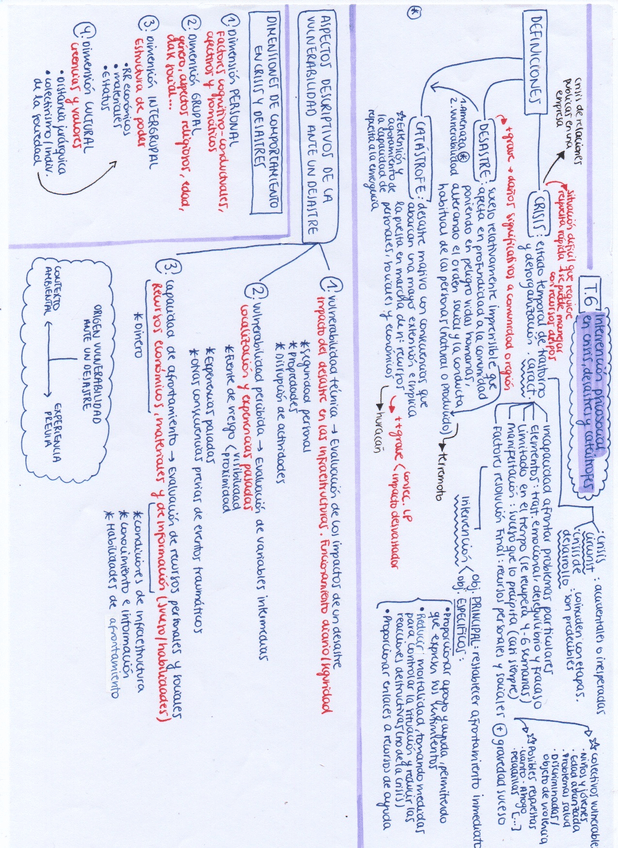 T.6 Intervención psicosocial
en crisis, desastres y catástrofes
DEFINICIONES
crisis de relaciones
públicas en una
empresa
Situación difícil que requiere
respuesta rápida + se puede manejar
con recursos adeptos
CRISIS: estado temporal de trastorno
y desorganización. Caract.
crisis
circunst.: accidentales o inesperadas
crisis de
desarrollo: coinciden con etapas.
son predecibles
incapacidad afrontar problemas particulares
Elementos: trast. emocional: desequilibrio y fracaso
Limitado en el tiempo (se recupera 4-6 semanas)
manifestación: suceso que lo precipita (casi siempre)
Factores resolución final: recursos personales y sociales + gravedad suceso
colectivos vulnerables
• Niños y jóvenes
• edad avanzada
• Problemas salud
• Discriminados/
objeto de violencia
Posibles respuestas
• Llanto · Ahogo
• pesadillas [...]
+ grave + daños significativos a comunidad o región
DESASTRE: suceso relativamente imprevisible que
afecta en profundidad a la comunidad
poniendo en peligro vidas humanas,
alterando el orden social y la conducta
habitual de las personas (natural o producido)
terremoto
1. Amenaza
2. Vulnerabilidad
CATÁSTROFE: desastre masivo con consecuencias que
abarcan una mayor extensión e implica
la puesta en marcha de nº recursos
personales, sociales y económicos
Extensión y
agotamiento de
la capacidad de
respuesta a la emergencia
++ grave < consec. LP
impacto devastador
huracán
Intervención
obj. PRINCIPAL: restablecer afrontamiento inmediato
obj. ESPECÍFICOS:
• Proporcionar apoyo y ayuda, permitiendo
que expresen sus sentimientos
• Reducir mortalidad, tomando medidas
para controlar la situación y reducir las
reacciones destructivas (no de la crisis)
• Proporcionar enlaces a recursos de ayuda
ASPECTOS DESCRIPTIVOS DE LA
VULNERABILIDAD ANTE UN DESASTRE
1. vulnerabilidad técnica → Evaluación de los impactos de un desastre
Impacto del desastre en las infraestructuras. Funcionamiento diario/seguridad
* Seguridad personal
* Propiedades
* Disrupción de actividades
2. vulnerabilidad percibida → Evaluación de variables intermedias
Localización y experiencias pasadas
* Fuente de riesgo < visibilidad
proximidad
* Experiencias pasadas
* Otras consecuencias previas de eventos traumáticos
3. capacidad de afrontamiento → Evaluación de recursos personales y sociales
Recursos económicos, materiales y de información (Juicio/habilidades)
* Dinero
* condiciones de infraestructura
* conocimiento e información
* Habilidades de afrontamiento
DIMENSIONES DE COMPORTAMIENTO
EN CRISIS Y DESASTRES
1. DIMENSIÓN PERSONAL
Factores cognitivo-conductuales,
afectivos y somáticos
2. DIMENSIÓN GRUPAL
género, aspectos religiosos, edad,
clase social...
3. DIMENSIÓN INTERGRUPAL
Estructura de poder
• RR económicos
• materiales
• Estatus
4. DIMENSIÓN CULTURAL
creencias y valores
• Distancia jerárquica
• colectivismo / indiv.
de la sociedad
ORIGEN VULNERABILIDAD
ANTE UN DESASTRE
CONTEXTO
AMBIENTAL
EXPERIENCIA
PREVIA